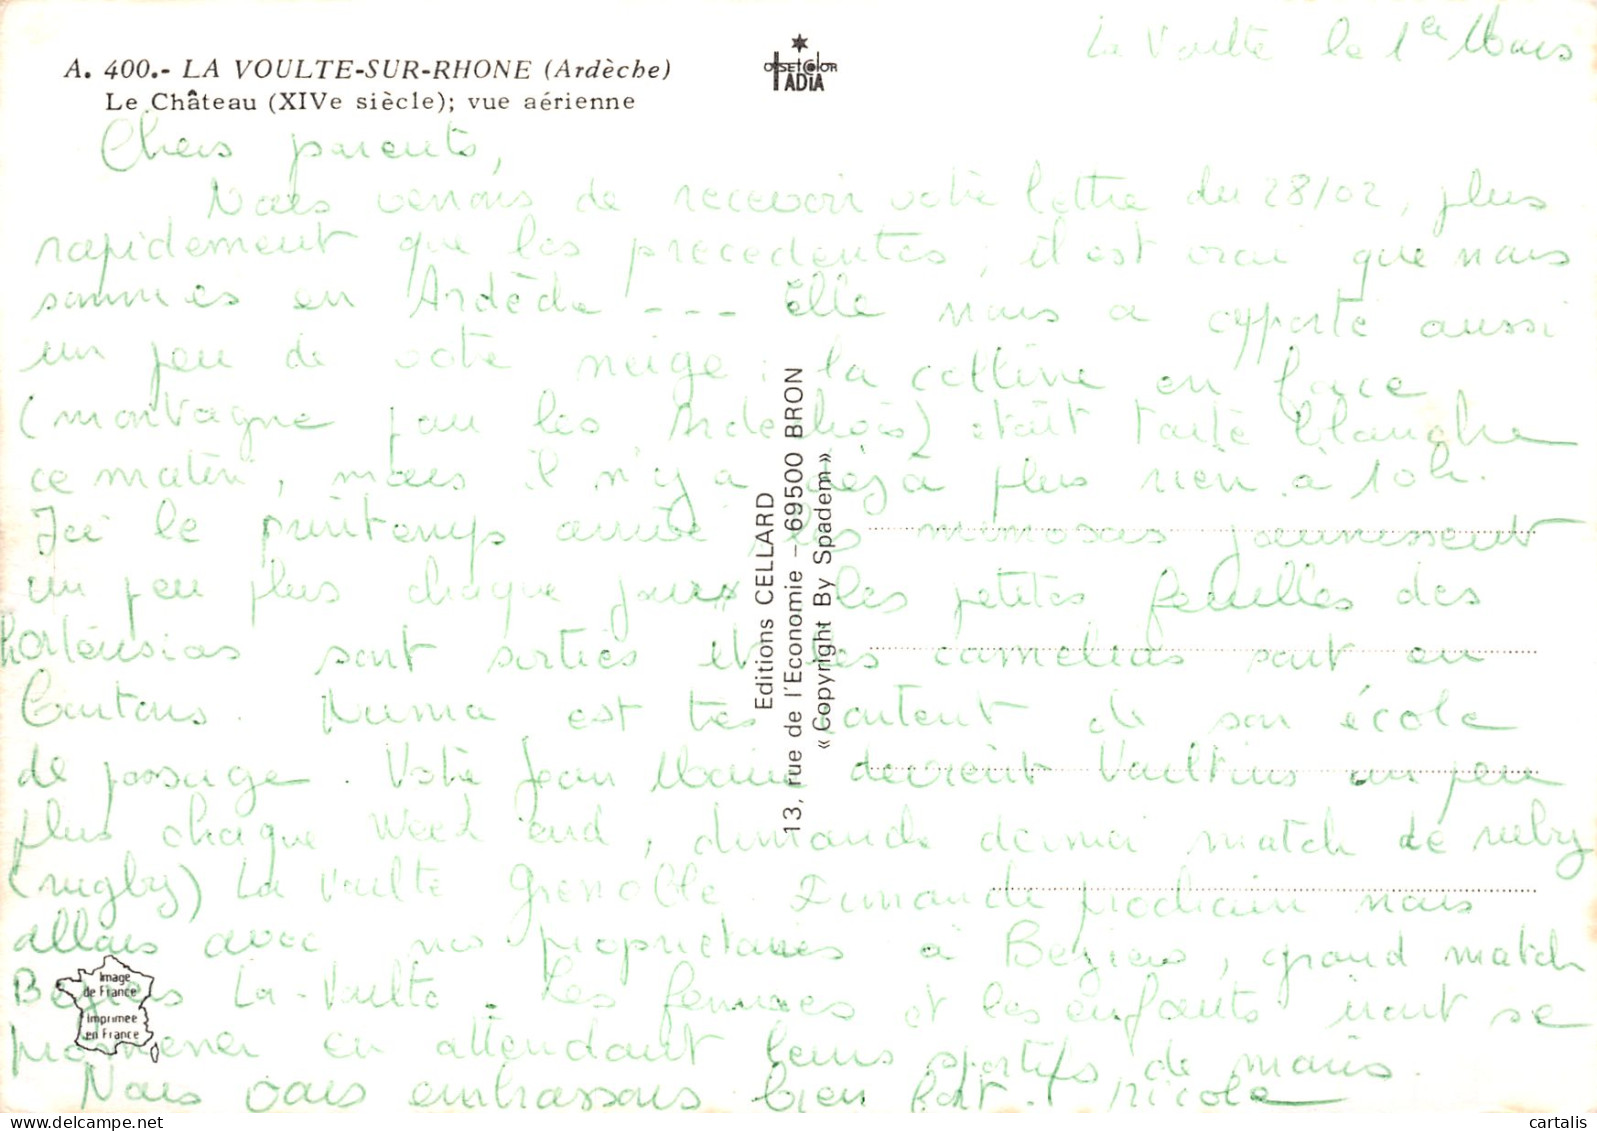 La Voulte le 1er Mars
A. 400.- LA VOULTE-SUR-RHONE (Ardèche)
Le Château (XIVe siècle); vue aérienne
OFFSETCOLOR
TADIA
Chers parents,
Nous venons de recevoir votre lettre du 28/02, plus
rapidement que les precedentes, il est vrai que nous
sommes en Ardèche --- Elle nous a apporté aussi
un peu de votre neige : la colline en face
(montagne pour les Ardechois) était toute blanche
ce matin, mais il n'y a déjà plus rien à 10h.
Ici le printemps arrive, les mimosas jaunissent
un peu plus chaque jour, les petites feuilles des
hortensias sont sorties et les camelias sont en
boutons. Numa est très content de son école
de passage. Votre Jean Marie devient Voultin un peu
plus chaque Week end, dimanche dernier match de ruby
(rugby) La Voulte Grenoble. Dimanche prochain nous
allons avec nos proprietaires à Beziers, grand match
Beziers La-Voulte. Les femmes et les enfants iront se
promener en attendant leurs sportifs de maris.
Nous vous embrassons bien fort. Nicole
Editions CELLARD
13, rue de l'Economie - 69500 BRON
« Copyright By Spadem »
Image
de France
Imprimee
en France
delcampe.net
cartalis